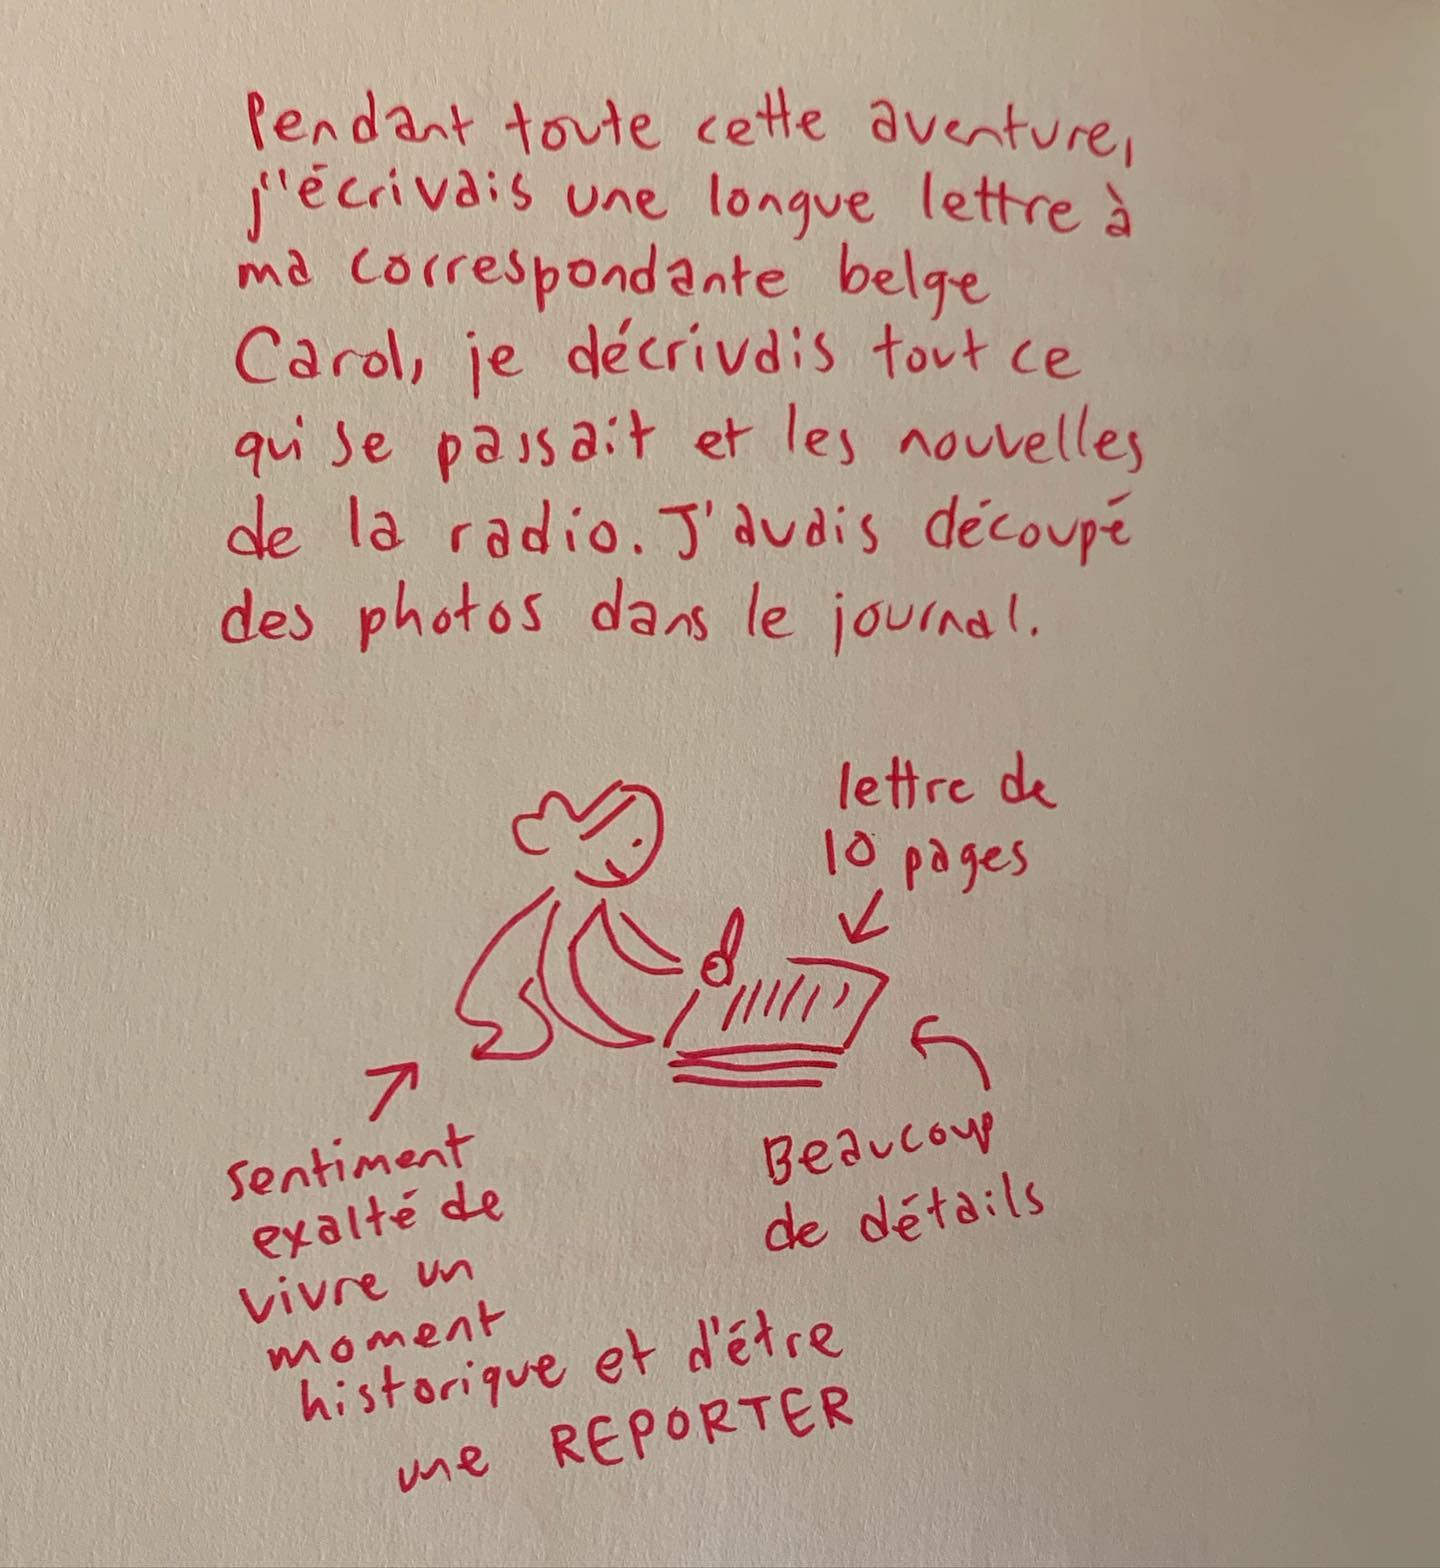 Pendant toute cette aventure,
j'écrivais une longue lettre à
ma correspondante belge
Carol, je décrivais tout ce
qui se passait et les nouvelles
de la radio. J'avais découpé
des photos dans le journal.
lettre de
10 pages
Beaucoup
de détails
sentiment
exalté de
vivre un
moment
historique et d'être
une REPORTER